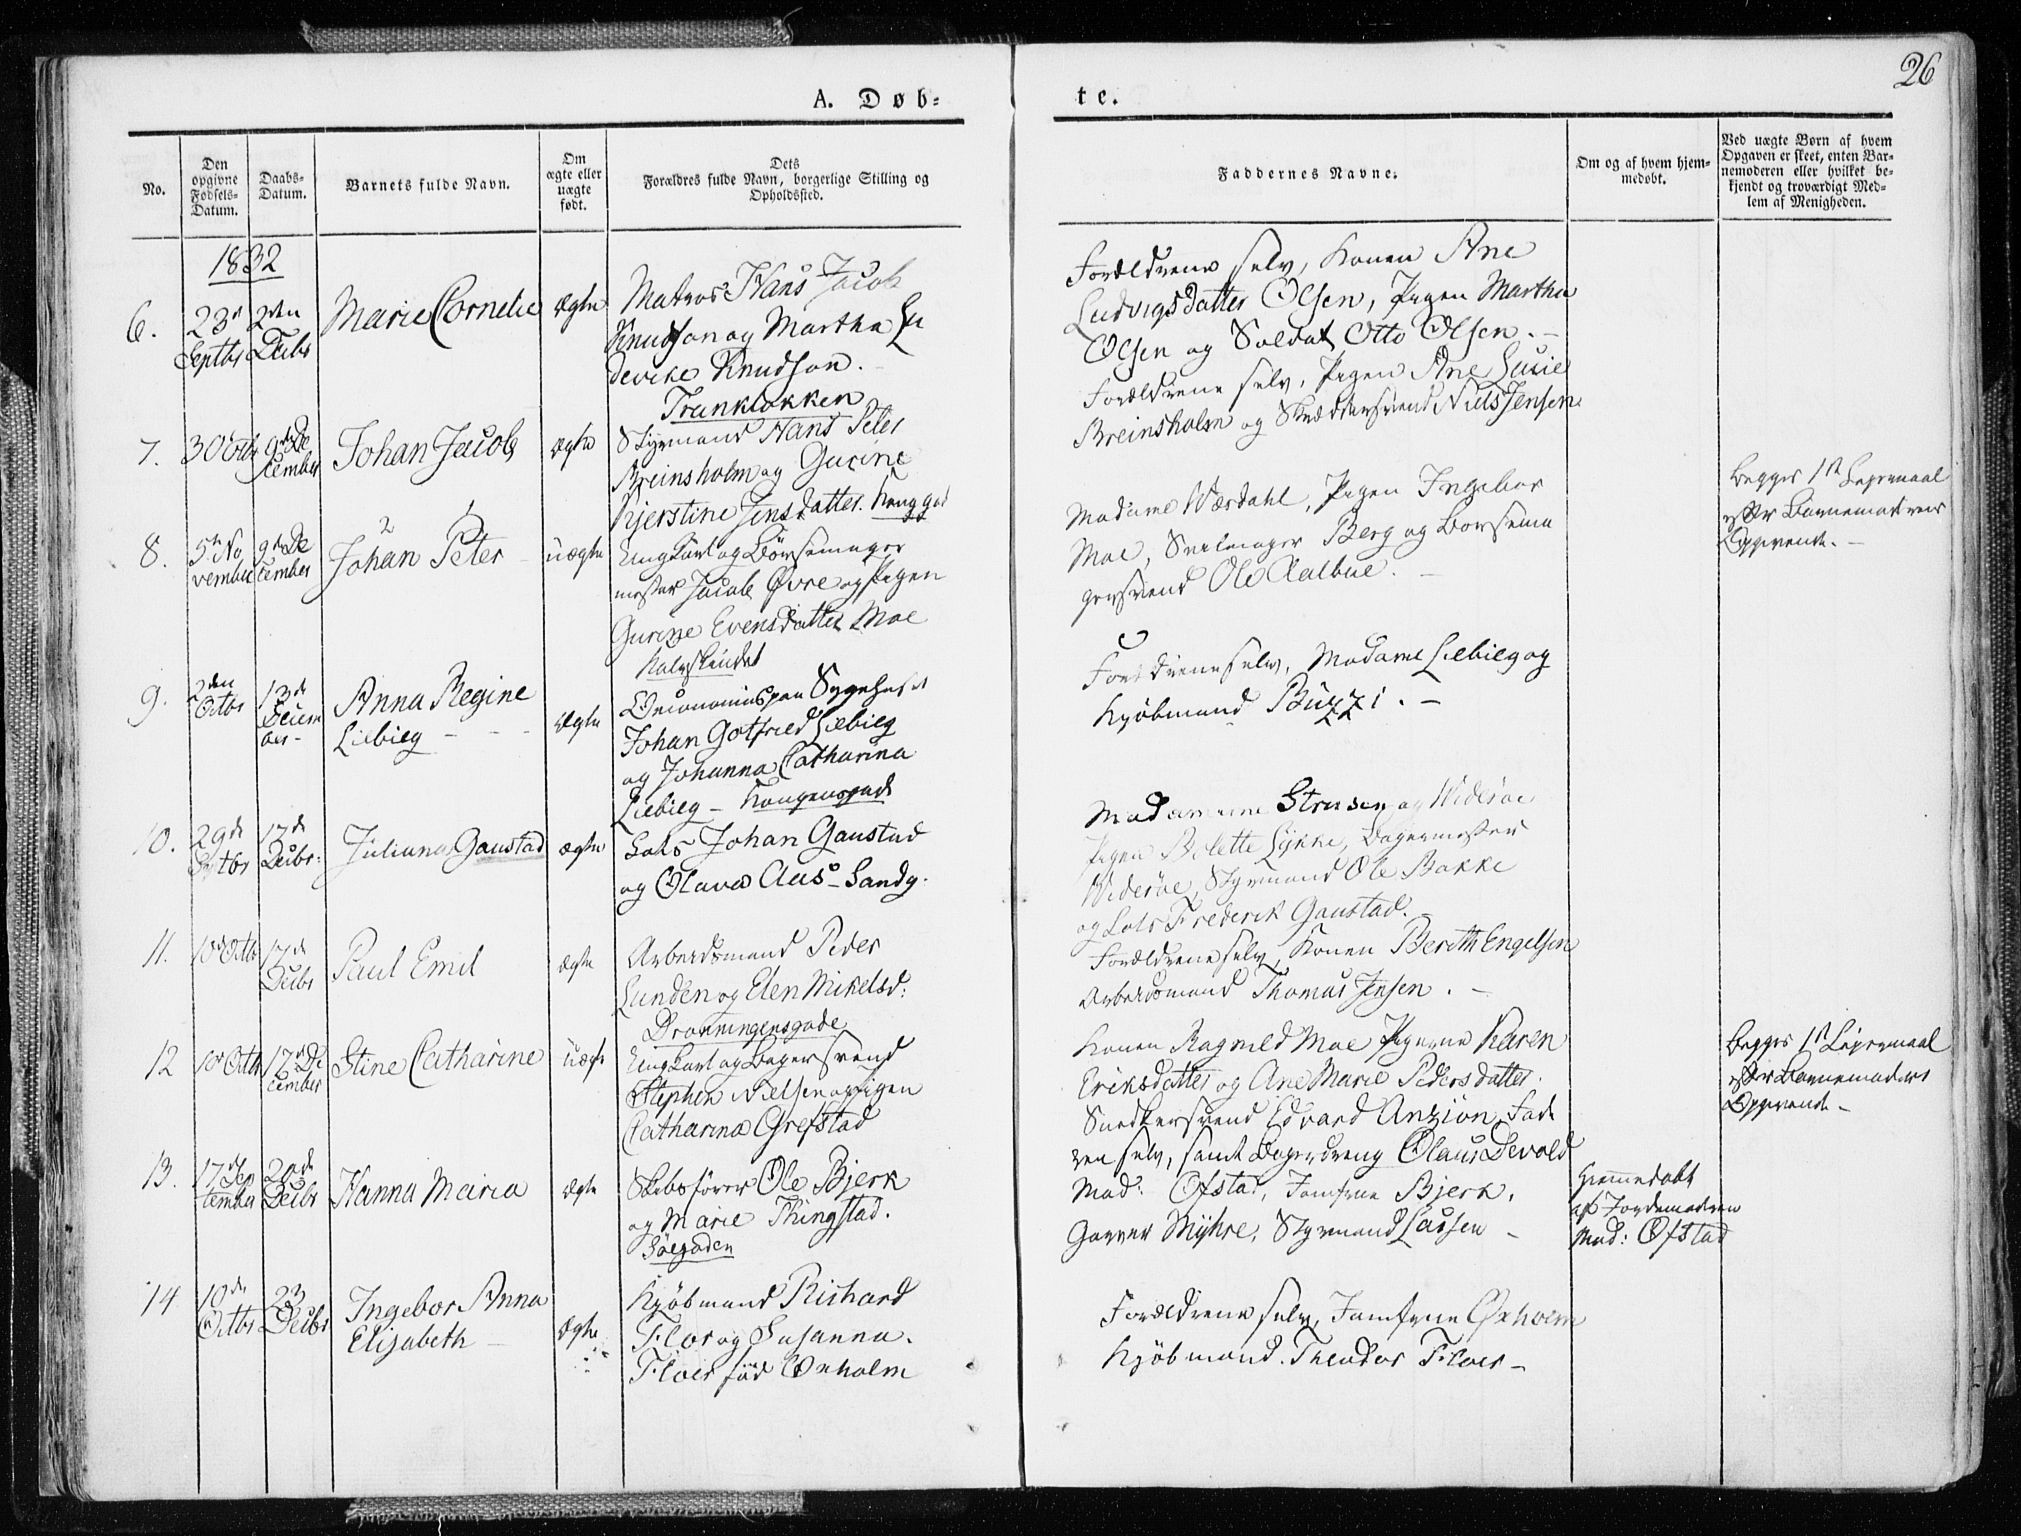 26
A. Døb-
te.
No.
Den opgivne Fødsels-Datum.
Daabs-Datum.
Barnets fulde Navn.
Om ægte eller uægte født.
Dets Forældres fulde Navn, borgerlige Stilling og Opholdssted.
Faddernes Navne.
Om og af hvem hjem-medøbt.
Ved uægte Børn af hvem Opgaven er skeet, enten Bar-nemoderen eller hvilket be-kjendt og troværdigt Med-lem af Menigheden.
1832
6. 23 Septbr 2den Decbr Marie Cornelie ægte
Matros Hans Jacob
Knudson og Martha Lu
devike Knudson.
Forældrene selv, Konen Ane
Ludvigsdatter Olsen, Pigen Martha
Olsen og Soldat Otto Olsen. -
7. 30 Octbr 9de December Johan Jacob ægte
Styrmand Hans Peter
Breinsholm og Gurine
Kjerstine Jensdatter.
Forældrene selv, Pigen Ane Lucie
Breinsholm og Skræddersvend Niels Jensen
8. 5te November 9de December
2 1
Johan Peter uægte
Ungkarl og Børsemager
mester Jacob Øvre og Pigen
Gurine Evensdatter Moe
Kalvskindet
Madame Werdahl, Pigen Ingebor
Moe, Berg og Børsema
gersvend Ole Aalbue. -
Begges 1ste Leiermaal
efter Barnemoderens
Opgivende. -
9. 2den Octbr 13de Decem ber -
Anna Regine
Liebieg - - -
ægte
Oeconomus paa Sygehuset
Johan Gotfried Liebieg
og Johanna Catharina
Liebieg - Kongensgade
Forældrene selv, Madame Liebieg og
Kjøbmand Buzzi. -
10. 29de Septbr 17de Decbr: Juliana Gaustad ægte
Lods Johan Gaustad
og Olava Aas - Sandg.
Madamerne Strusen og Widerøe
Pigen Bolette Lykke, Bagermester
Widerøe, Styrmand Ole Bakke
og Lods Frederik Gaustad.
11. 10de Octbr 17de Decbr Paul Emil ægte
Arbeidsmand Peder
Lunden og Elen Mikelsd:
Dronningensgade
Forældrene selv, Konen Berith Engelsen
Arbeidsmand Thomas Jensen. -
12 10 Octbr 17de December Stine Catharine uægte
Ungkarl og Bagersvend
Stephen Nielsen og Pigen
Catharina Grefstad
Konen Ragnild Moe Pigerne Karen
Eriksdatter og Ane Marie Pedersdatter.
Snedkersvend Edvard Anzion, Fade
ren selv, samt Bagerdreng Olaus Devold
Begges 1ste Leiermaal
efter Barnemoderens
Opgivende -
13. 17de September 20de Decbr Hanna Maria ægte
Skibsfører Ole Bjerk
og Marie Thingstad.
Søegaden
Mad: Ofstad, Jomfrue Bjerk,
Garver Myhre, Styrmand Lassen -
Hjemmedøbt
af Jordemoderen
Mad: Ofstad
14 10de Octbr 23 Decbr
Ingebor Anna
Elisabeth -
ægte
Kjøbmand Richard
Floer og Susanna
Floer fød Oxholm
Forældrene selv, Jomfrue Oxholm
Kjøbmand Theodor Floer -